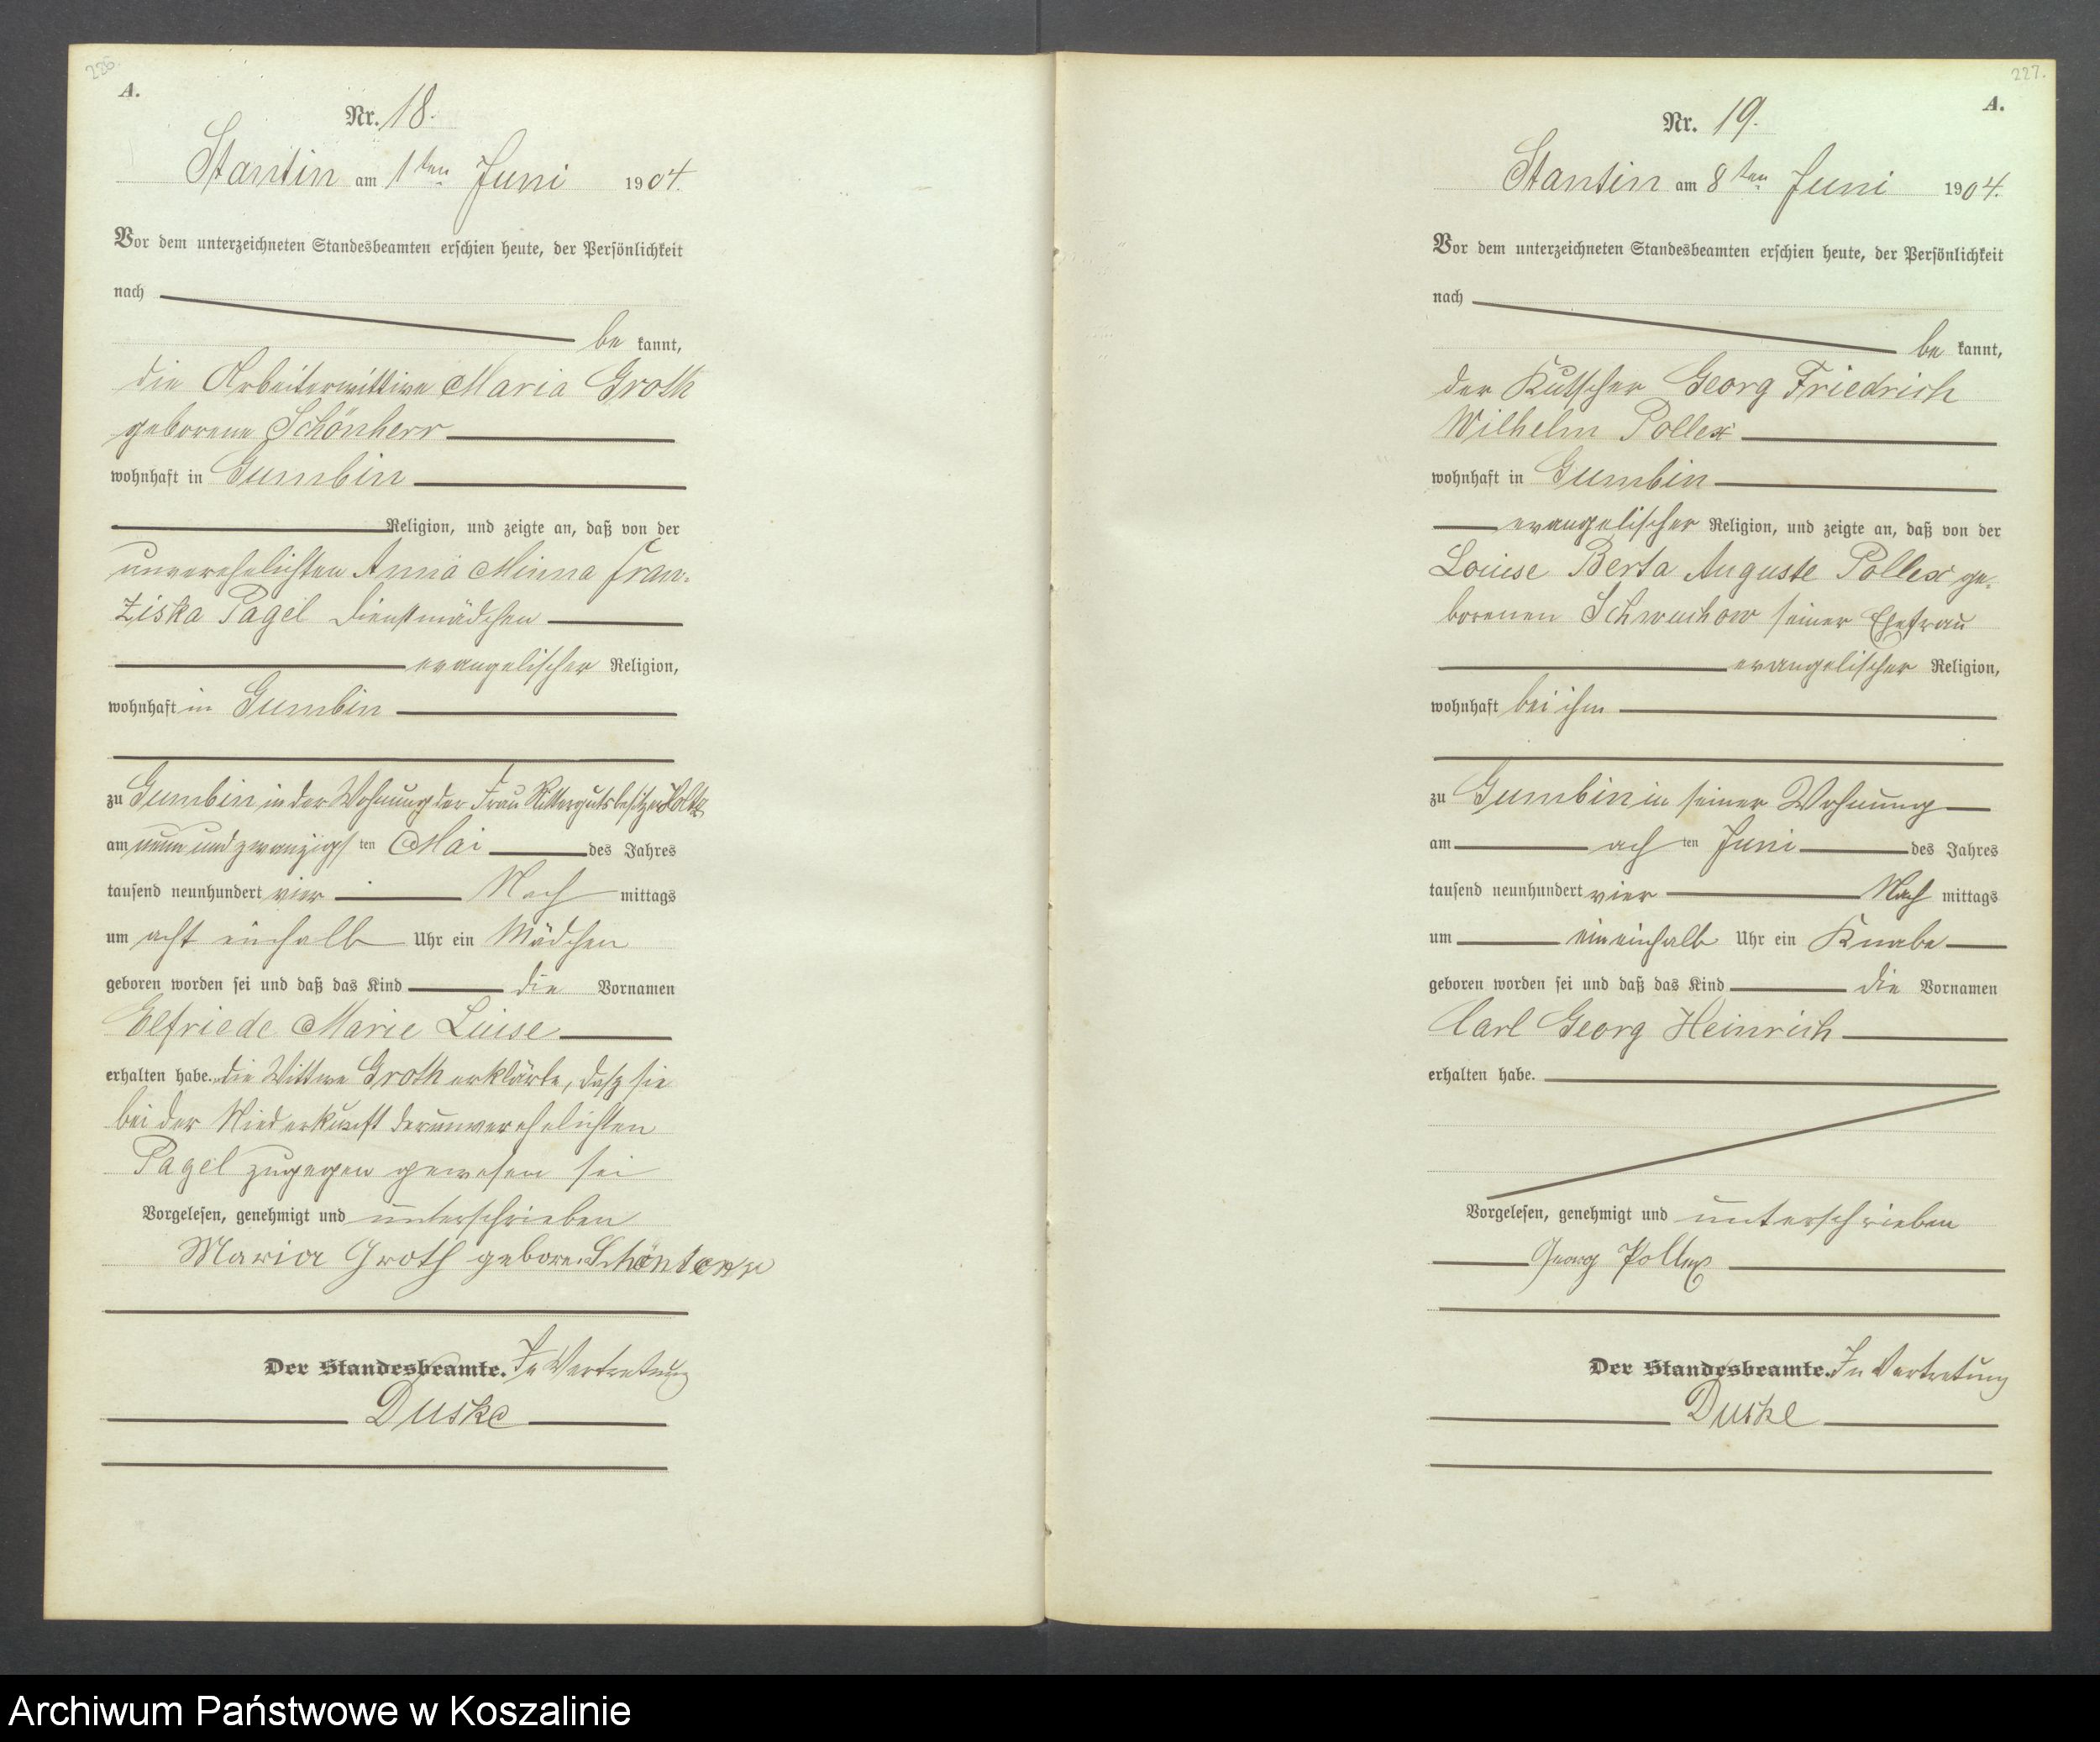 226.
A.
Nr. 18.
Stantin am 1ten Juni 1904.
Vor dem unterzeichneten Standesbeamten erschien heute, der Persönlichkeit
nach
be kannt,
die Arbeiterwittwe Maria Groth
geborene Schönherr
wohnhaft in Gumbin
Religion, und zeigte an, daß von der
unverehelichten Anna Minna Fran-
ziska Pagel Dienstmädchen
evangelischer Religion,
wohnhaft in Gumbin
zu Gumbin in der Wohnung der Frau Rittergutsbesitzer
am neun und zwanzigs ten Mai des Jahres
tausend neunhundert vier Nach mittags
um acht einhalb Uhr ein Mädchen
geboren worden sei und daß das Kind die Vornamen
Elfriede Marie Luise
erhalten habe. die Wittwe Groth erklärte, daß sie
bei der Niederkunft der unverehelichten
Pagel zugegen gewesen sei
Vorgelesen, genehmigt und unterschrieben
Maria Groth
Der Standesbeamte. In Vertretung
Duske
227.
A.
Nr. 19.
Stantin am 8ten Juni 1904.
Vor dem unterzeichneten Standesbeamten erschien heute, der Persönlichkeit
nach
be kannt,
der Kutscher Georg Friedrich
Wilhelm Pollex
wohnhaft in Gumbin
evangelischer Religion, und zeigte an, daß von der
Louise Berta Auguste Pollex ge-
borenen Schwuchow seiner Ehefrau
evangelischer Religion,
wohnhaft bei ihm
zu Gumbin in seiner Wohnung
am ach ten Juni des Jahres
tausend neunhundert vier Nach mittags
um ein einhalb Uhr ein Knabe
geboren worden sei und daß das Kind die Vornamen
Carl Georg Heinrich
erhalten habe.
Vorgelesen, genehmigt und unterschrieben
Georg Pollex
Der Standesbeamte. In Vertretung
Duske
Archiwum Państwowe w Koszalinie